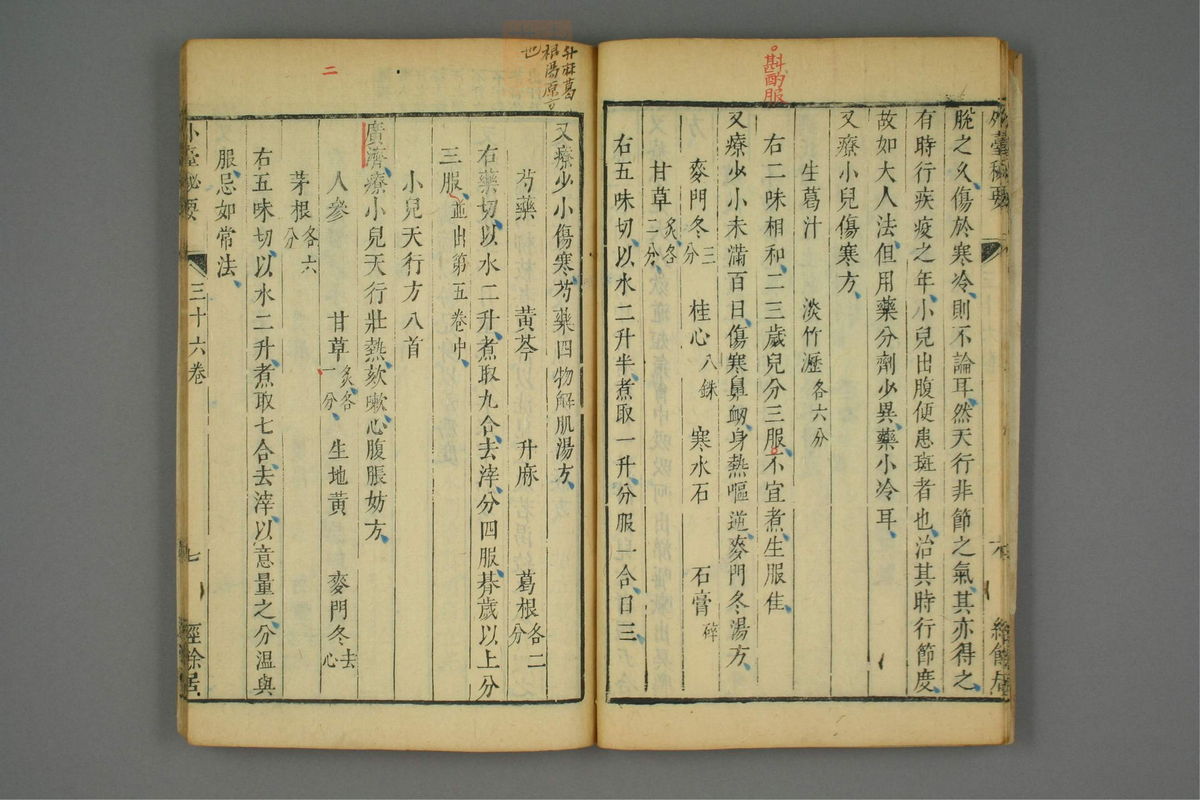 斟酌服
外臺秘要
六
經餘居
脫之久傷於寒冷則不論耳然天行非節之氣其亦得之
有時行疾疫之年小兒出腹便患斑者也治其時行節度
故如大人法但用藥分劑少異藥小冷耳
又療小兒傷寒方
生葛汁 淡竹瀝各六分
右二味相和二三歲兒分三服不宜煮生服佳
又療少小未滿百日傷寒鼻衂身熱嘔逆麥門冬湯方
麥門冬三分 桂心八銖 寒水石 石膏碎
甘草炙各二分
右五味切以水二升半煮取一升分服一合日三
升麻葛
根湯原方
也
又療少小傷寒芍藥四物解肌湯方
芍藥 黃芩 升麻 葛根各二分
右藥切以水二升煮取九合去滓分四服朞歲以上分
三服並出第五卷中
小兒天行方八首
二
廣濟療小兒天行壯熱欬嗽心腹脹妨方
人參 甘草炙各一分 生地黃 麥門冬去心
茅根各六分
右五味切以水二升煮取七合去滓以意量之分溫與
服忌如常法
外臺秘要
三十六卷
七
經餘居